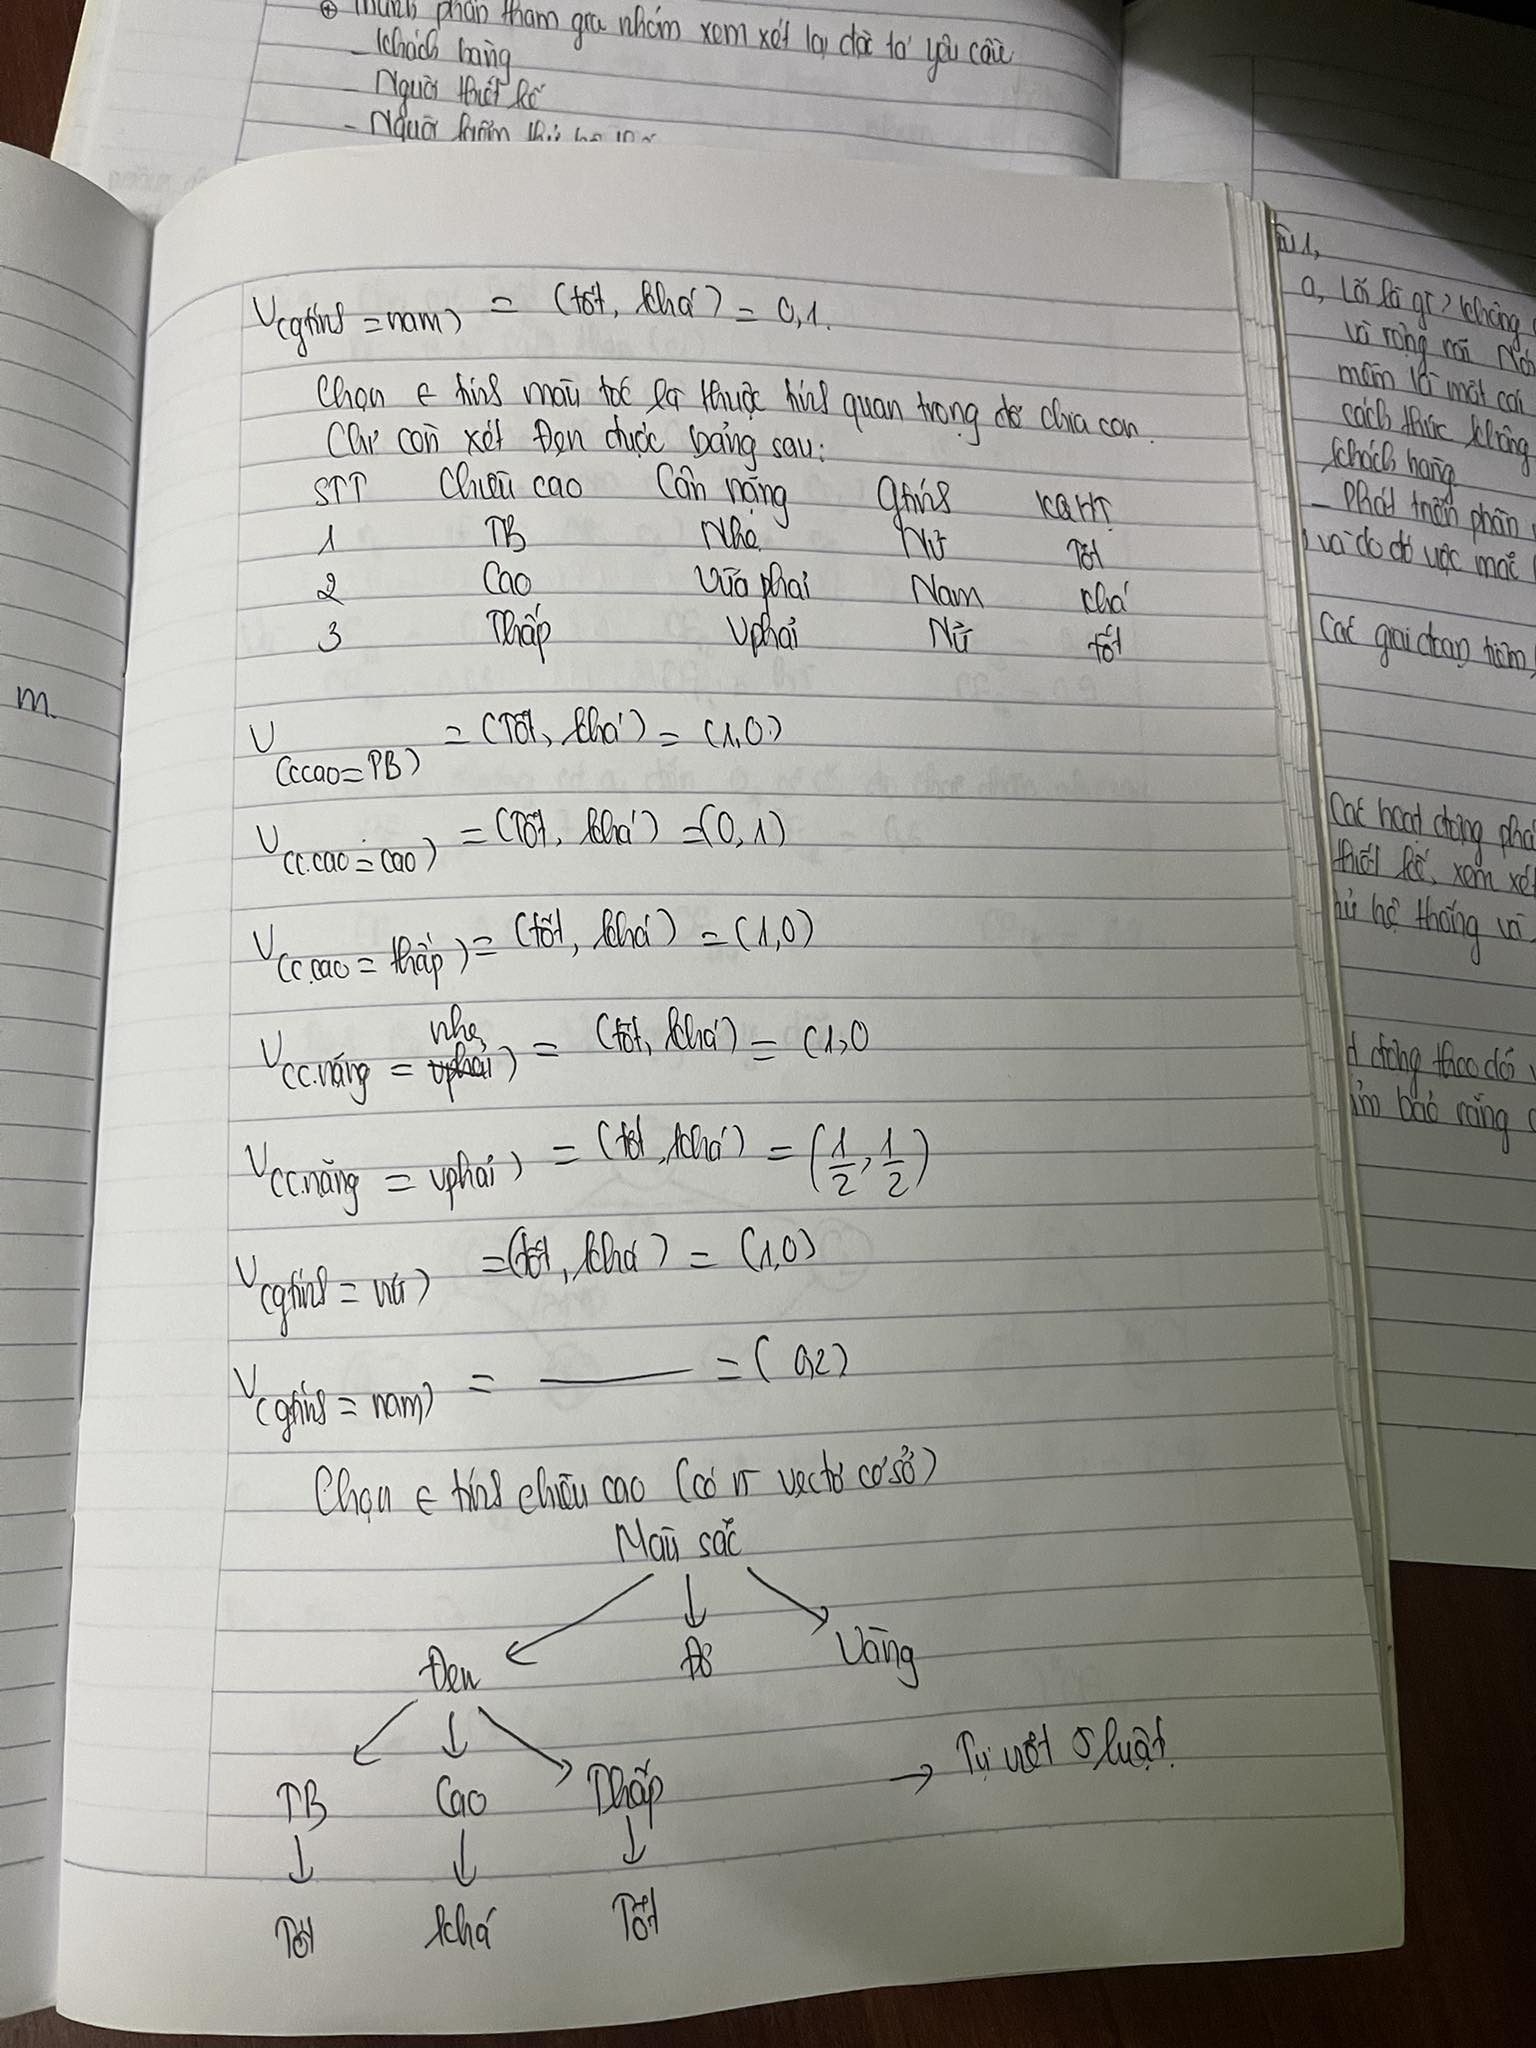 ⊕ Thành phần tham gia nhóm xem xét lại đặc tả yêu cầu
- Khách hàng
- Người thiết kế
- Người kiểm thử
V(gtính = nam) = (tốt, khá) = 0,1.
Chọn t tính màu tóc là thuộc tính quan trọng để chia con.
Chỉ còn xét Đen được bảng sau:
STT Chiều cao Cân nặng Gtính KQHT
1 TB Nhẹ Nữ Tốt
2 Cao Vừa phải Nam Khá
3 Thấp Vphải Nữ tốt
V(ccao = PB) = (Tốt, khá) = (1,0)
V(c.cao = cao) = (Tốt, khá) = (0,1)
V(c.cao = thấp) = (tốt, khá) = (1,0)
V(c.nặng = nhẹ) = (tốt, khá) = (1,0
V(c.nặng = vphải) = (tốt, khá) = (1/2, 1/2)
V(gtính = nữ) = (tốt, khá) = (1,0)
V(gtính = nam) = —— = (0,2)
Chọn t tính chiều cao (có n vectơ cơ sở)
Màu sắc
Đen Đỏ Vàng
TB Cao Thấp → Tự viết 5 luật.
Tốt khá Tốt
m.
a, Lỗi là gì? không
và rộng rãi
mềm là một cái
cách thức không
khách hàng
- Phát triển phần
và do đó việc mắc
Các giai đoạn
Các hoạt động
thiết kế, xem xét
hệ thống và
động theo dõi
đảm bảo rằng